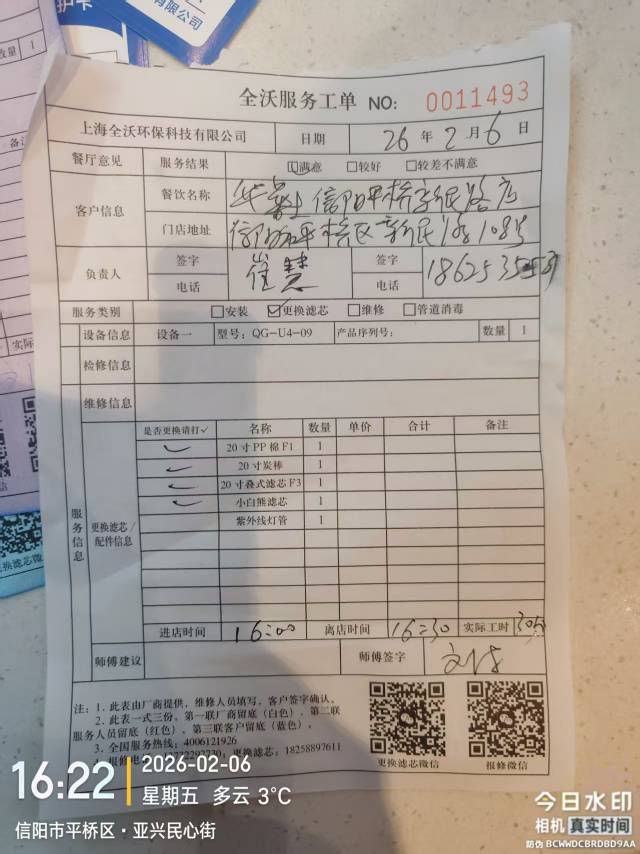 护卡
有限公司
数量 1
全沃服务工单 NO: 0011493
上海全沃环保科技有限公司 日期 26 年 2 月 6 日
餐厅意见 服务结果 ☑满意 □较好 □较差不满意
客户信息 餐饮名称 信阳平桥新民路店
门店地址 信阳平桥区新民路108号
负责人 签字 崔慧 签字
电话 电话 18625
服务类别 □安装 ☑更换滤芯 □维修 □管道消毒
设备信息 设备一 型号: QG-U4-09 产品序列号: 数量 1
检修信息
维修信息
服务信息 更换滤芯/配件信息
是否更换请打✓ 名称 数量 单价 合计 备注
✓ 20寸PP棉F1 1
✓ 20寸炭棒 1
✓ 20寸叠式滤芯F3 1
✓ 小白熊滤芯 1
紫外线灯管 1
进店时间 16:00 离店时间 16:30 实际工时 30分
师傅建议 师傅签字
注: 1. 此表由厂商提供, 维修人员填写, 客户签字确认。
2. 此表一式三份。第一联厂商留底(白色)。第二联
服务人员留底(红色)。第三联客户留底(蓝色)。
3. 全国服务热线: 4006121926
更换滤芯: 18258897611
更换滤芯微信 报修微信
实际工
更换滤芯微
16:22 2026-02-06
星期五 多云 3℃
信阳市平桥区·亚兴民心街
今日水印
相机 真实时间
防伪 BCWWDCBRDBD9AA